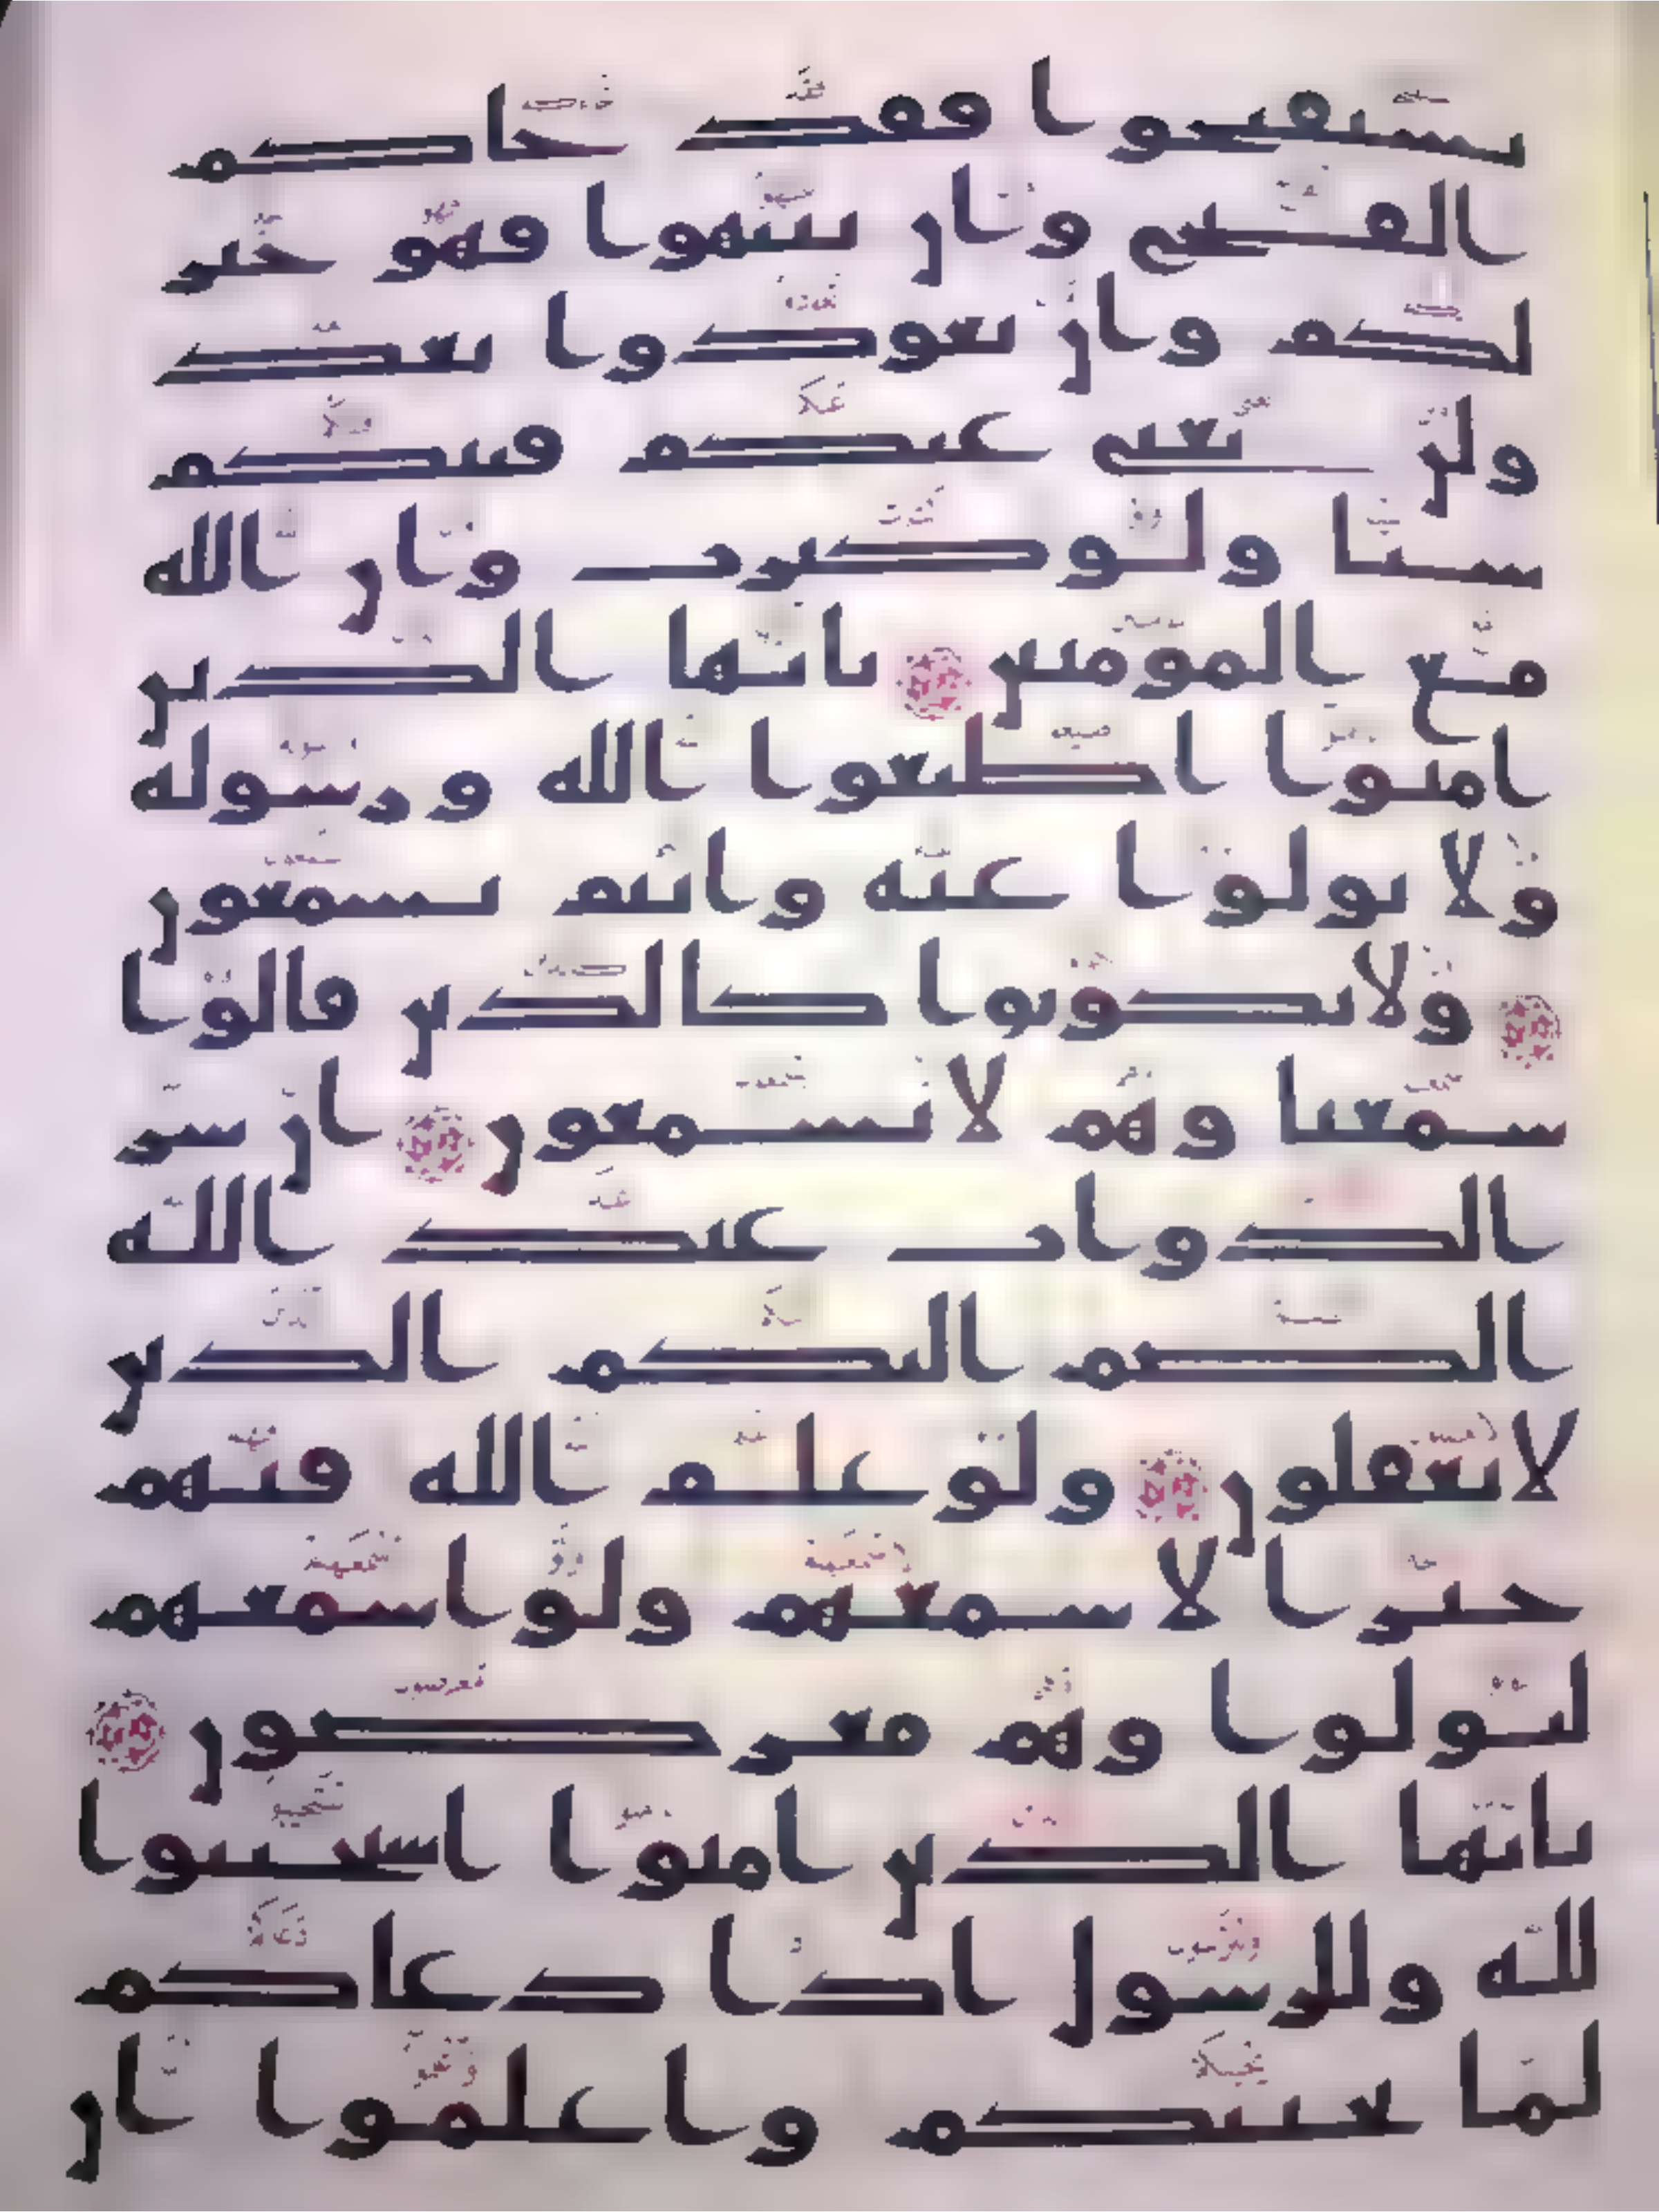 ٮستفتحوا فقد جاكم
الفتح وان تنتهوا فهو خير
لكم وان تعودوا نعد
ولن تغنى عنكم فيتكم
شيا ولو كثرت وان الله
مع المومنين يايها الذين
امنوا اطيعوا الله ورسوله
ولا تولوا عنه وانتم تسمعون
ولا تكونوا كالذين قالوا
سمعنا وهم لا يسمعون ان شر
الدواب عند الله
الصم البكم الذين
لا يعقلون ولو علم الله فيهم
خيرا لا سمعهم ولو اسمعهم
لتولوا وهم معرضون
يايها الذين امنوا استجيبوا
لله وللرسول اذا دعاكم
لما يحييكم واعلموا ان